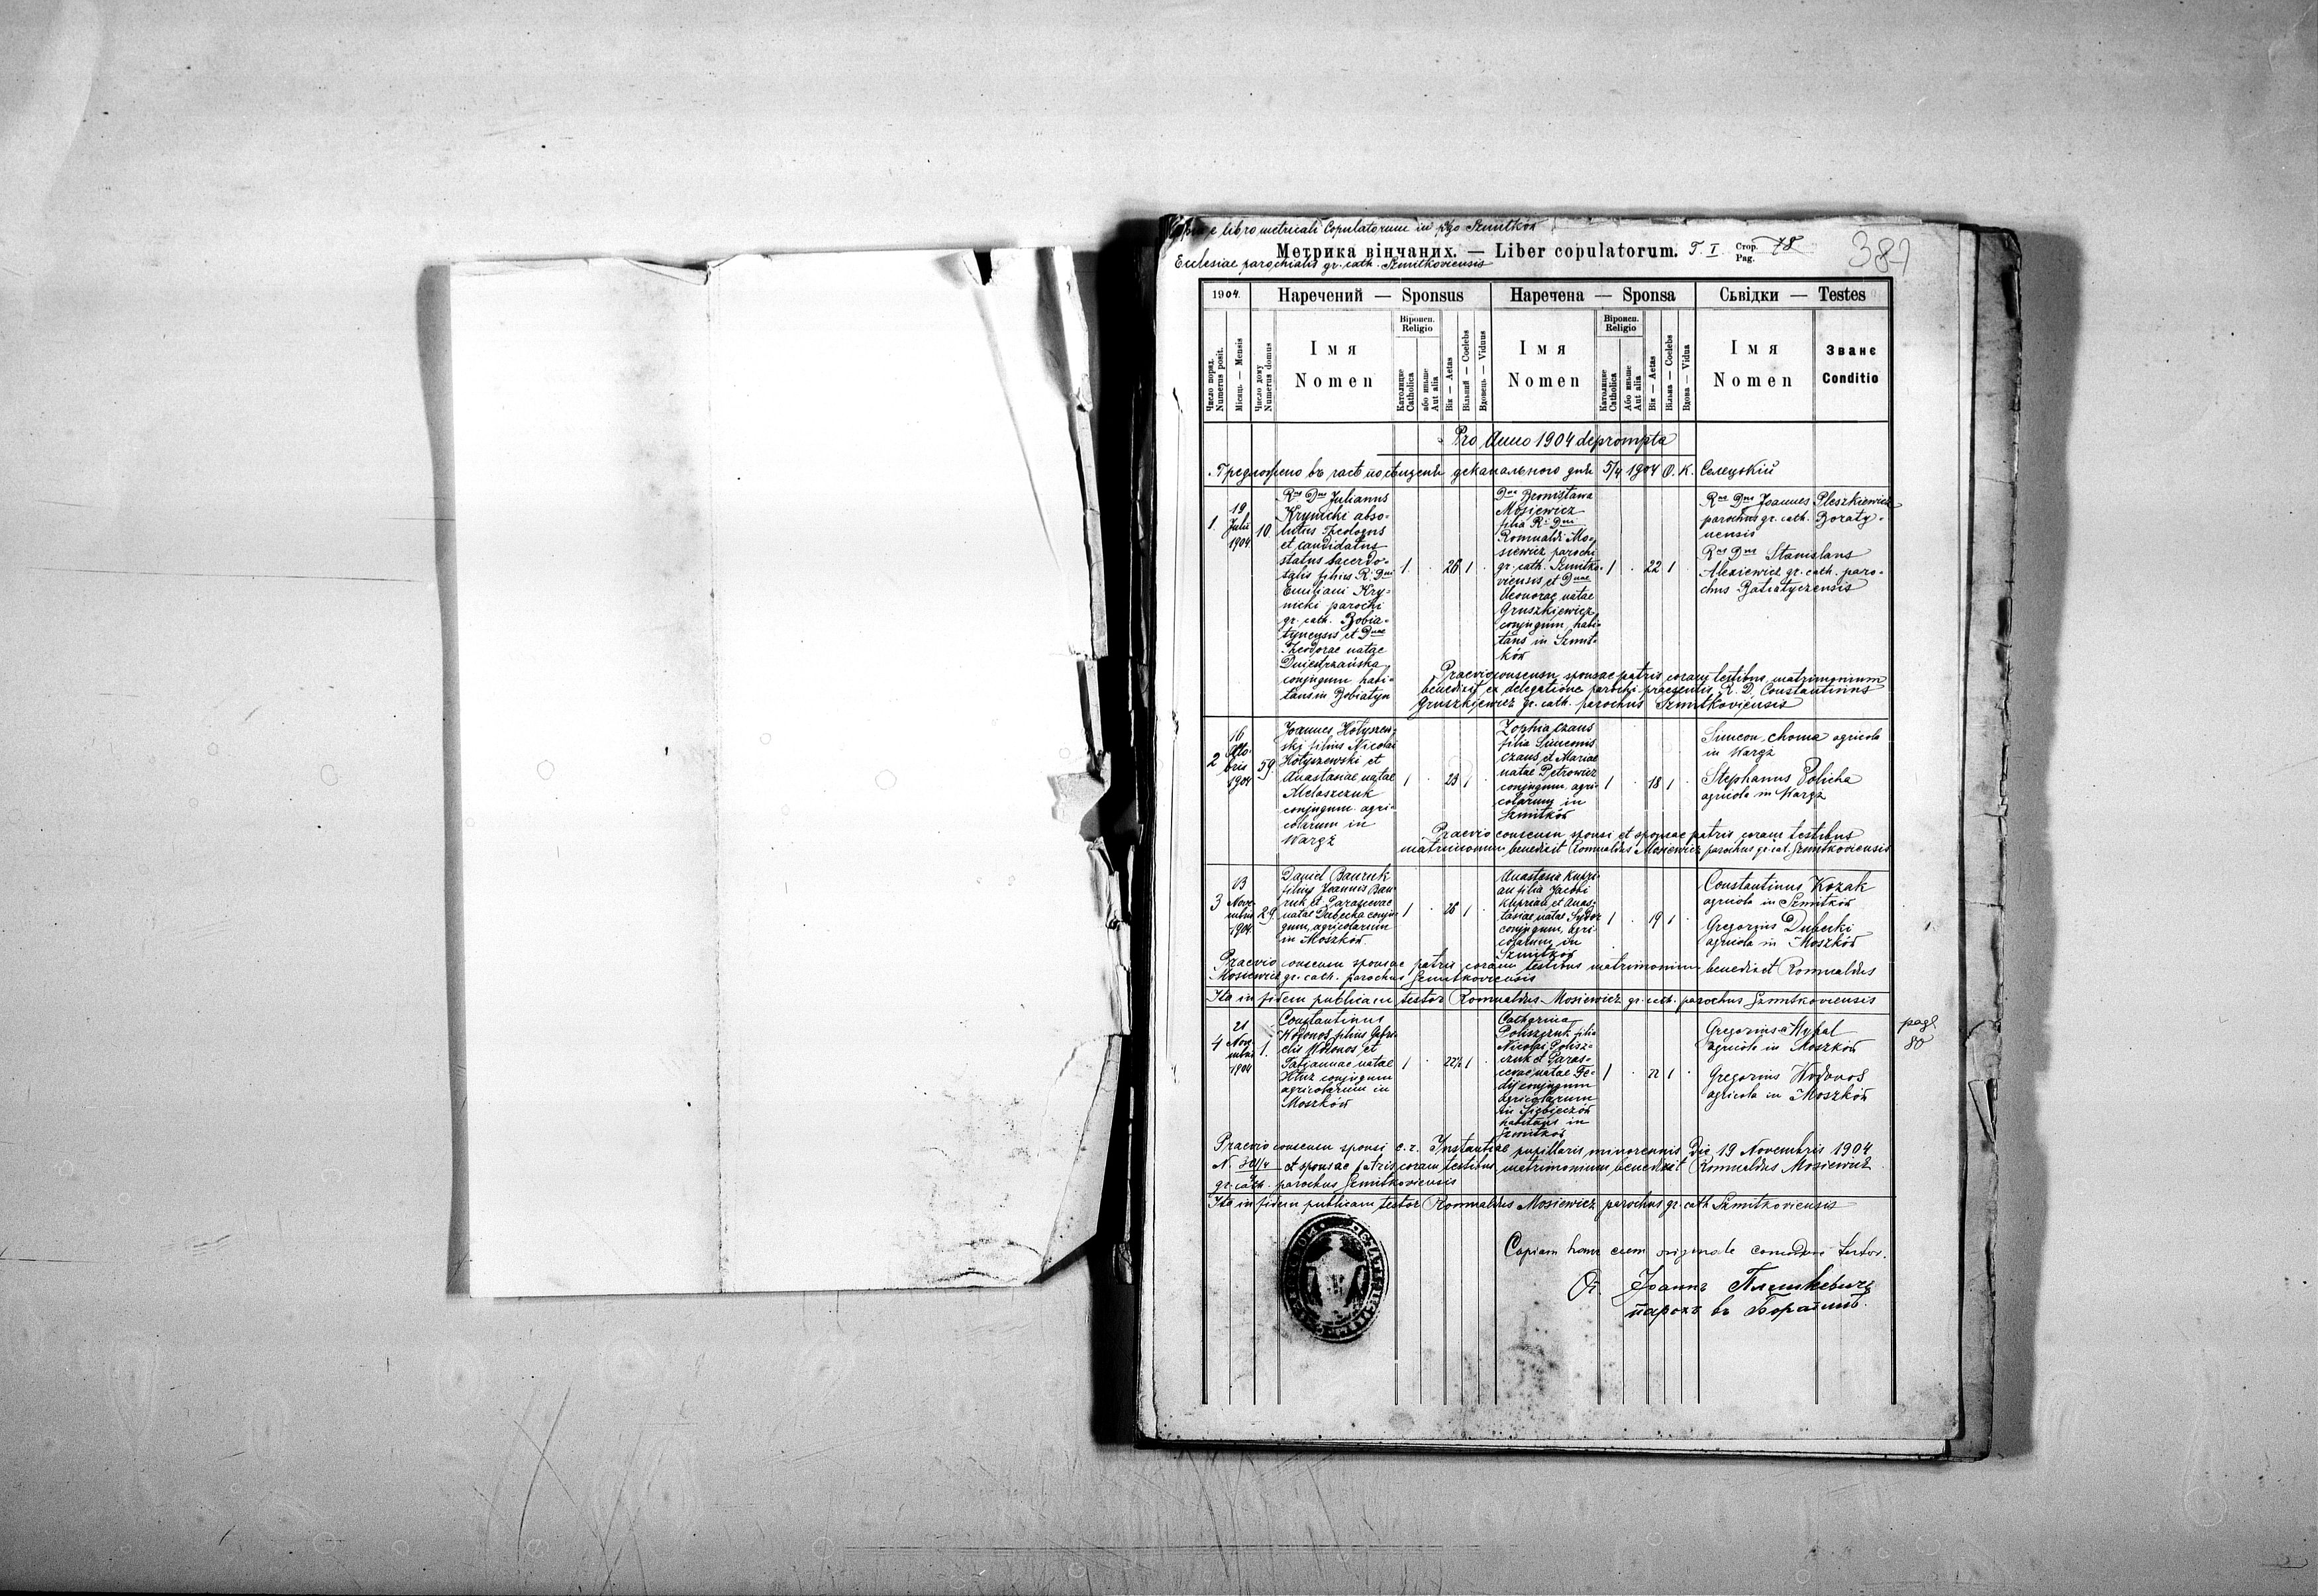 libro metricali Copulatorum in pago Szmitków
Метрика вінчаних. — Liber copulatorum. T. I Стор. Pag. 78
387
Ecclesiae parochialis gr. cath. Szmitkoviensis
1904. Наречений — Sponsus Наречена — Sponsa Сьвідки — Testes
Число поряд. Numerus posit.
Місяць — Mensis
Число дому Numerus domus
Імя Nomen
Віроисп. Religio
Католицке Catholica
або иньше Aut alia
Вік — Aetas
Вільний — Coelebs
Вдовець — Viduus
Імя Nomen
Віроисп. Religio
Католицке Catholica
Або иньше Aut alia
Вік — Aetas
Вільна — Coelebs
Вдова — Vidua
Імя Nomen
Званє Conditio
Pro Anno 1904 deprompta
деканального дня 5/4 1904 О. К. Селецкій
1.
19
Julii
1904
10.
Rus Dnus Julianus
Krynicki abso-
lutus Theologus
et candidatus
status sacerdo-
talis filius R. Dni
Emiliani Kry-
nicki parochi
gr. cath. Bobia-
tynensis et Dnae
Theodorae natae
Dniestrzańska
conjugum habi-
tans in Bobiatyn
1 . 26 1 .
Dna Bronisława
Mosiewicz
filia R. Dni
Romualdi Mo-
siewicz parochi
gr. cath. Szmitko-
viensis et Dnae
Eleonorae natae
Gruszkiewicz
conjugum, habi-
tans in Szmit-
ków
1 . 22 1 .
Rus Dnus Joannes Pleszkiewicz
parochus gr. cath. Boraty-
nensis
Rus Dnus Stanislaus
Alexiewicz gr. cath. paro-
chus Batiatyczensis
Praevio consensu sponsae patris coram testibus matrimonium
benedixit ex delegatione parochi praesentis R. D. Constantinus
Gruszkiewicz gr. cath. parochus Szmitkoviensis
2
16
Octo-
bris
1904
59.
Joannes Hołyszew-
ski filius Nicolai
Hołyszewski et
Anastasiae natae
conjugum agri-
colarum in
Waręż
1 . 23 1
Zophia Czaus
filia Simeonis
Czaus et Mariae
natae Petrowicz
conjugum agri-
colarum in
Szmitków
1 . 18 1 .
Simeon Choma agricola
in Waręż
Stephanus Policha
agricola in Waręż
Praevio consensu sponsi et sponsae patris coram testibus
matrimonium benedixit Romualdus Mosiewicz parochus gr. cat. Szmitkoviensis
3
13
Nove-
mbris
1904
29.
Daniel Bauruk
filius Joannis Bau-
ruk et Parascevae
natae Dubecka conju-
gum, agricolarum
in Moszków
1 . 26 1 .
Anastasia Kupri-
an filia Jacobi
Kuprian et Anas-
tasiae natae Sydor
conjugum, agri-
colarum in
Szmitków
1 . 19 1 .
Constantinus Kozak
agricola in Szmitków
Gregorius Dubecki
agricola in Moszków
Praevio consensu sponsae patris coram testibus matrimonium benedixit Romualdus
Mosiewicz gr. cath. parochus Szmitkoviensis
Ita in fidem publicam testor Romualdus Mosiewicz gr. cath. parochus Szmitkoviensis
4
21
Nove-
mbris
1904
1.
Constantinus
Wodonos filius Gabri-
elis Wodonos et
Tatjannae natae
conjugum
agricolarum in
Moszków
1 . 22½ 1 .
Catharina
Poliszczuk filia
Nicolai Polisz-
czuk et Paras-
cevae natae Fe-
dij conjugum
agricolarum
in
habitans in
Szmitków
1 . 22 1 .
Gregorius Mykal
agricola in Moszków
Gregorius Wodonos
agricola in Moszków
pag.
80
Praevio consensu sponsi c. r. Instantiae pupillaris minorennis Die 19 Novembris 1904
et sponsae patris coram testibus matrimonium benedixit Romualdus Mosiewicz
gr. cath. parochus Szmitkoviensis
Ita in fidem publicam testor Romualdus Mosiewicz parochus gr. cath. Szmitkoviensis
Copiam hanc cum originale testor.
О. Іоаннъ Плешкевичъ
парохъ въ Боратинѣ.